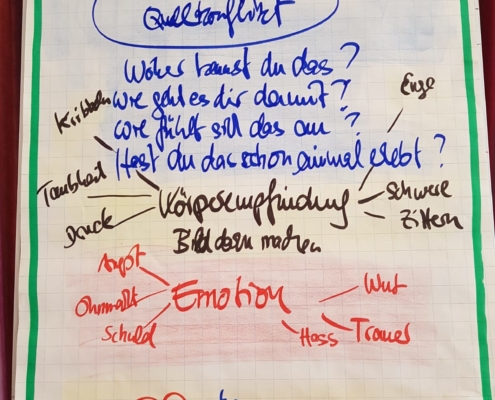 Quellkonflikt
Woher kennst du das?
Wie geht es dir damit?
Wie fühlt sich das an?
Hast du das schon einmal erlebt?
Enge
Kribbeln
Taubheit
Druck
Körperempfindung
Schwere
Zittern
Bild dazu machen
Angst
Ohnmacht
Schuld
Emotion
Wut
Hass Trauer